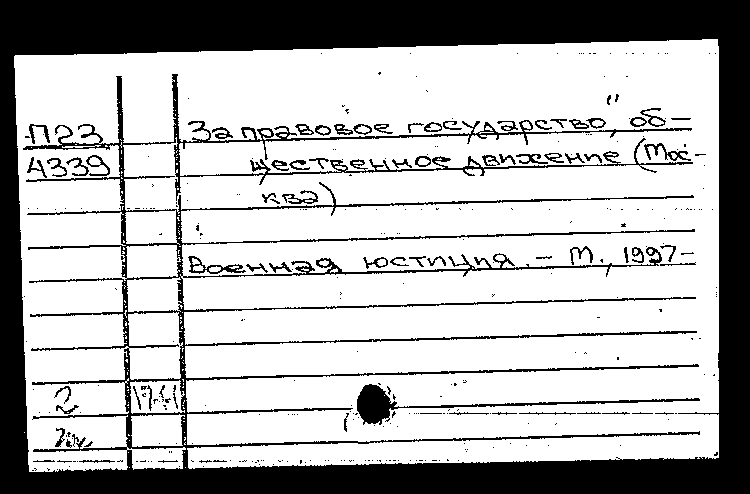 П23 „За правовое государство", об-
4339 щественное движение (Мос-
ква)
Военная юстиция. – М., 1997–
2